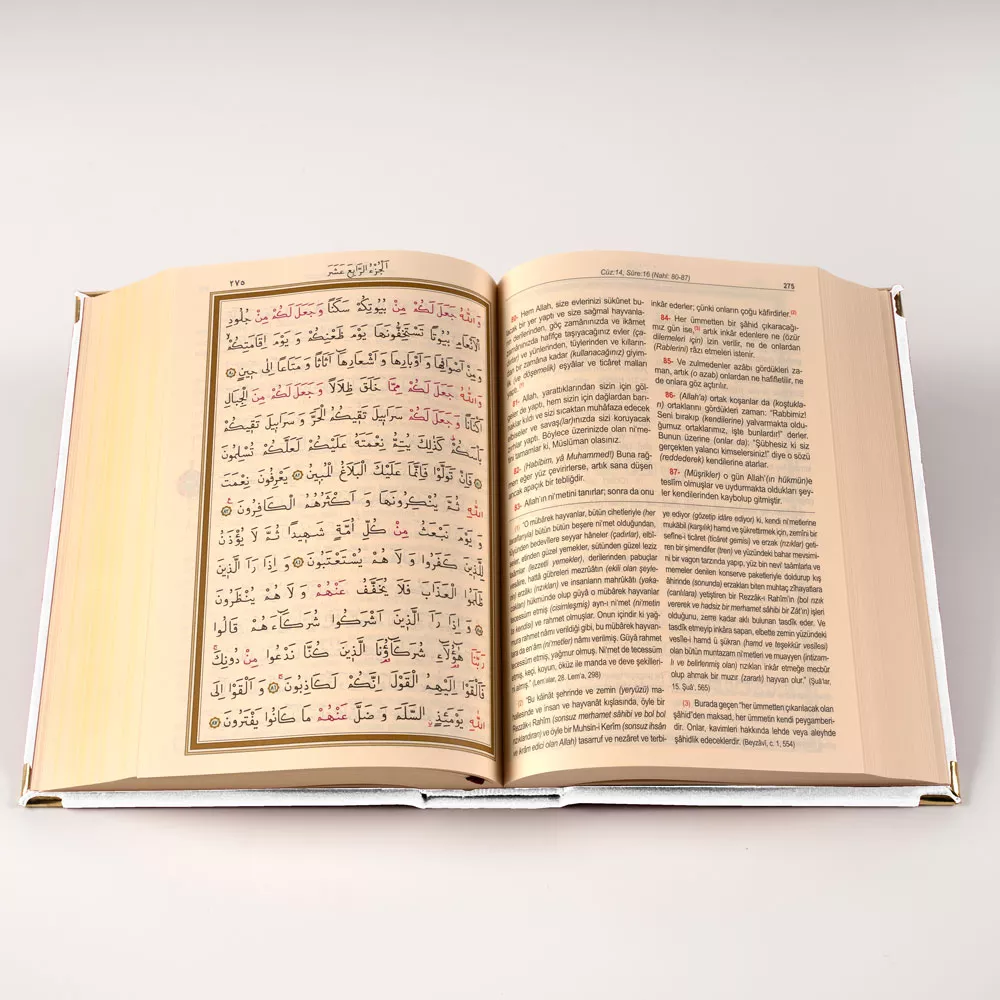 الجزء الرابع عشر
٢٧٥
وَاللّٰهُ جَعَلَ لَكُمْ مِنْ بُيُوتِكُمْ سَكَنًا وَجَعَلَ لَكُمْ مِنْ جُلُودِ
الْاَنْعَامِ بُيُوتًا تَسْتَخِفُّونَهَا يَوْمَ ظَعْنِكُمْ وَ يَوْمَ اِقَامَتِكُمْ
وَمِنْ اَصْوَافِهَا وَ اَوْبَارِهَا وَ اَشْعَارِهَا اَثَاثًا وَ مَتَاعًا اِلٰى حِينٍ ﴿٨٠﴾
وَاللّٰهُ جَعَلَ لَكُمْ مِمَّا خَلَقَ ظِلَالًا وَجَعَلَ لَكُمْ مِنَ الْجِبَالِ
اَكْنَانًا وَ جَعَلَ لَكُمْ سَرَابِيلَ تَقِيكُمُ الْحَرَّ وَ سَرَابِيلَ تَقِيكُمْ
بَاْسَكُمْ كَذٰلِكَ يُتِمُّ نِعْمَتَهُ عَلَيْكُمْ لَعَلَّكُمْ تُسْلِمُونَ
﴿٨١﴾ فَاِنْ تَوَلَّوْا فَاِنَّمَا عَلَيْكَ الْبَلَاغُ الْمُبِينُ ﴿٨٢﴾ يَعْرِفُونَ نِعْمَتَ
اللّٰهِ ثُمَّ يُنْكِرُونَهَا وَ اَكْثَرُهُمُ الْكَافِرُونَ ﴿٨٣﴾
وَ يَوْمَ نَبْعَثُ مِنْ كُلِّ اُمَّةٍ شَهِيدًا ثُمَّ لَا يُؤْذَنُ
لِلَّذِينَ كَفَرُوا وَ لَا هُمْ يُسْتَعْتَبُونَ ﴿٨٤﴾ وَ اِذَا رَاَ الَّذِينَ
ظَلَمُوا الْعَذَابَ فَلَا يُخَفَّفُ عَنْهُمْ وَ لَا هُمْ يُنْظَرُونَ
﴿٨٥﴾ وَ اِذَا رَاَ الَّذِينَ اَشْرَكُوا شُرَكَٓاءَهُمْ قَالُوا
رَبَّنَا هٰٓؤُلَٓاءِ شُرَكَٓاؤُنَا الَّذِينَ كُنَّا نَدْعُوا مِنْ دُونِكَ
فَاَلْقَوْا اِلَيْهِمُ الْقَوْلَ اِنَّكُمْ لَكَاذِبُونَ ﴿٨٦﴾ وَ اَلْقَوْا اِلَى
اللّٰهِ يَوْمَئِذٍ السَّلَمَ وَ ضَلَّ عَنْهُمْ مَا كَانُوا يَفْتَرُونَ ﴿٨٧﴾
Cüz:14, Sûre:16 (Nahl: 80-87)
275
80- Hem Allah, size evlerinizi sükûnet bu-
lacak bir yer yaptı ve size sağmal hayvanla-
rın derilerinden, göç zamanınızda ve ikâmet
zamanınızda hafifçe taşıyacağınız evler (ça-
dırlar) ve yünlerinden, tüylerinden ve kılların-
dan bir zamâna kadar (kullanacağınız) giyim-
lik (ve döşemelik) eşyâlar ve ticâret malları
yaptı.
81- Allah, yarattıklarından sizin için göl-
geler de yaptı, hem sizin için dağlardan barı-
naklar kıldı ve sizi sıcaktan muhâfaza edecek
elbiseler ve savaş(lar)ınızda sizi koruyacak
zırhlar yaptı. Böylece üzerinizde olan ni'me-
tini tamamlar ki, Müslüman olasınız.
82- (Habîbim, yâ Muhammed!) Buna rağ-
men eğer yüz çevirirlerse, artık sana düşen
ancak apaçık bir tebliğdir.
83- Allah'ın ni'metini tanırlar; sonra da onu
inkâr ederler; çünki onların çoğu kâfirdirler.(2)
84- Her ümmetten bir şâhid çıkaracağı-
mız gün ise,(3) artık inkâr edenlere ne (özür
dilemeleri için) izin verilir, ne de onlardan
(Rablerini) râzı etmeleri istenir.
85- Ve zulmedenler azâbı gördükleri za-
man, artık (o azab) onlardan ne hafifletilir, ne
de onlara göz açtırılır.
86- (Allah'a) ortak koşanlar da (koştukla-
rı) ortaklarını gördükleri zaman: "Rabbimiz!
Seni bırakıp (kendilerine) yalvarmakta oldu-
ğumuz ortaklarımız, işte bunlardır!" derler.
Bunun üzerine (onlar da): "Şübhesiz ki siz
gerçekten yalancı kimselersiniz!" diye o sözü
(reddederek) kendilerine atarlar.
87- (Müşrikler) o gün Allah'(ın hükmün)e
teslîm olmuşlar ve uydurmakta oldukları şey-
ler kendilerinden kaybolup gitmiştir.
(1) "O mübârek hayvanlar, bütün cihetleriyle (her
taraflarıyla) bütün bütün beşere ni'met olduğundan,
derisinden bedevîlere seyyar hâneler (çadırlar), elbi-
seler, elinden güzel yemekler, sütünden güzel leziz
taamlar (lezzetli yemekler), derilerinden pabuçlar
vesâire, hattâ gübreleri mezrûâtın (ekili olan şeyle-
rin) erzâkı (rızıkları) ve insanların mahrûkātı (yaka-
cakları) hükmünde olup gûyâ o mübârek hayvanlar
tecessüm etmiş (cisimleşmiş) ayn-ı ni'met (ni'metin
tâ kendisi) ve rahmet olmuşlar. Onun içindir ki yağ-
mura rahmet nâmı verildiği gibi, bu mübârek hayvan-
lara da en'âm (ni'metler) nâmı verilmiş. Gûyâ rahmet
tecessüm etmiş, yağmur olmuş. Ni'met de tecessüm
etmiş, keçi, koyun, öküz ile manda ve deve şekilleri-
ni almış." (Lem'alar, 28. Lem'a, 298)
(2) "Bu kâinât şehrinde ve zemin (yeryüzü) ma-
hallesinde ve insan ve hayvanât kışlasında, öyle bir
Rezzâk-ı Rahîm (sonsuz merhamet sâhibi ve bol bol
rızıklandıran) ve öyle bir Muhsin-i Kerîm (sonsuz ihsân
ve ikrâm edici olan Allah) tasarruf ve nezâret ve terbi-
ye ediyor (gözetip idâre ediyor) ki, kendi ni'metlerine
mukābil (karşılık) hamd ve şükrettirmek için, zemîni bir
sefîne-i ticâret (ticâret gemisi) ve erzak (rızıklar) geti-
ren bir şimendifer (tren) ve yüzündeki bahar mevsimi-
ni bir vagon tarzında yapıp, yüz bin nevi taâmlarla ve
memeler denilen konserve paketleriyle doldurup kış
âhirinde (sonunda) erzakları biten muhtaç zîhayatlara
(canlılara) yetiştiren bir Rezzâk-ı Rahîm'in (bol rızık
vererek ve hadsiz bir merhamet sâhibi bir Zât'ın) işleri
olduğunu, zerre kadar aklı bulunan tasdîk eder. Ve
tasdîk etmeyip inkâra sapan, elbette zemin yüzündeki
vesîle-i hamd ü şükran (hamd ve teşekkür vesîlesi)
olan bütün muntazam ni'metleri ve muayyen (intizam-
lı ve belirlenmiş olan) rızıkları inkâr etmeğe mecbûr
olup ahmak bir muzır (zararlı) hayvan olur." (Şuâ'lar,
15. Şuâ', 565)
(3) Burada geçen "her ümmetten çıkarılacak olan
şâhid"den maksad, her ümmetin kendi peygamberi-
dir. Onlar, kavimleri hakkında lehde veya aleyhde
şâhidlik edeceklerdir. (Beyzâvî, c. 1, 554)